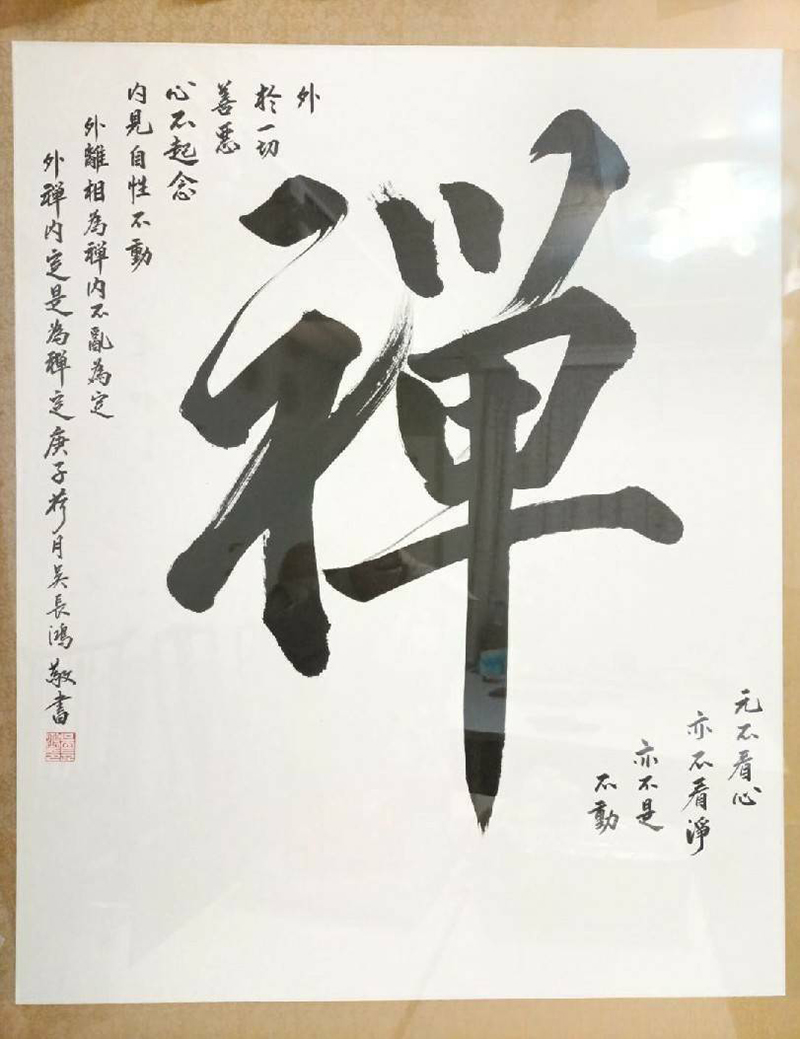 禪
元不看心
亦不看淨
亦不是
不動
外
於一切
善惡
心不起念
內見自性不動
外離相為禪內不亂為定
外禪內定是為禪定庚子荷月吳長鴻敬書